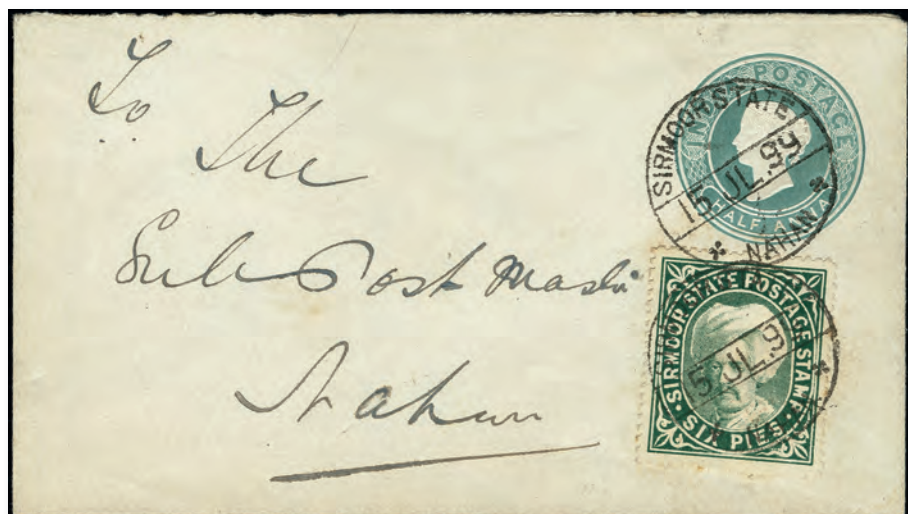 To
The
Sub Post Master
Nahan
INDIA POSTAGE
HALF ANNA
SIRMOOR STATE
15 JL.99
NAHAN
SIRMOOR STATE POSTAGE STAMP
SIX PIES
5 JL.9